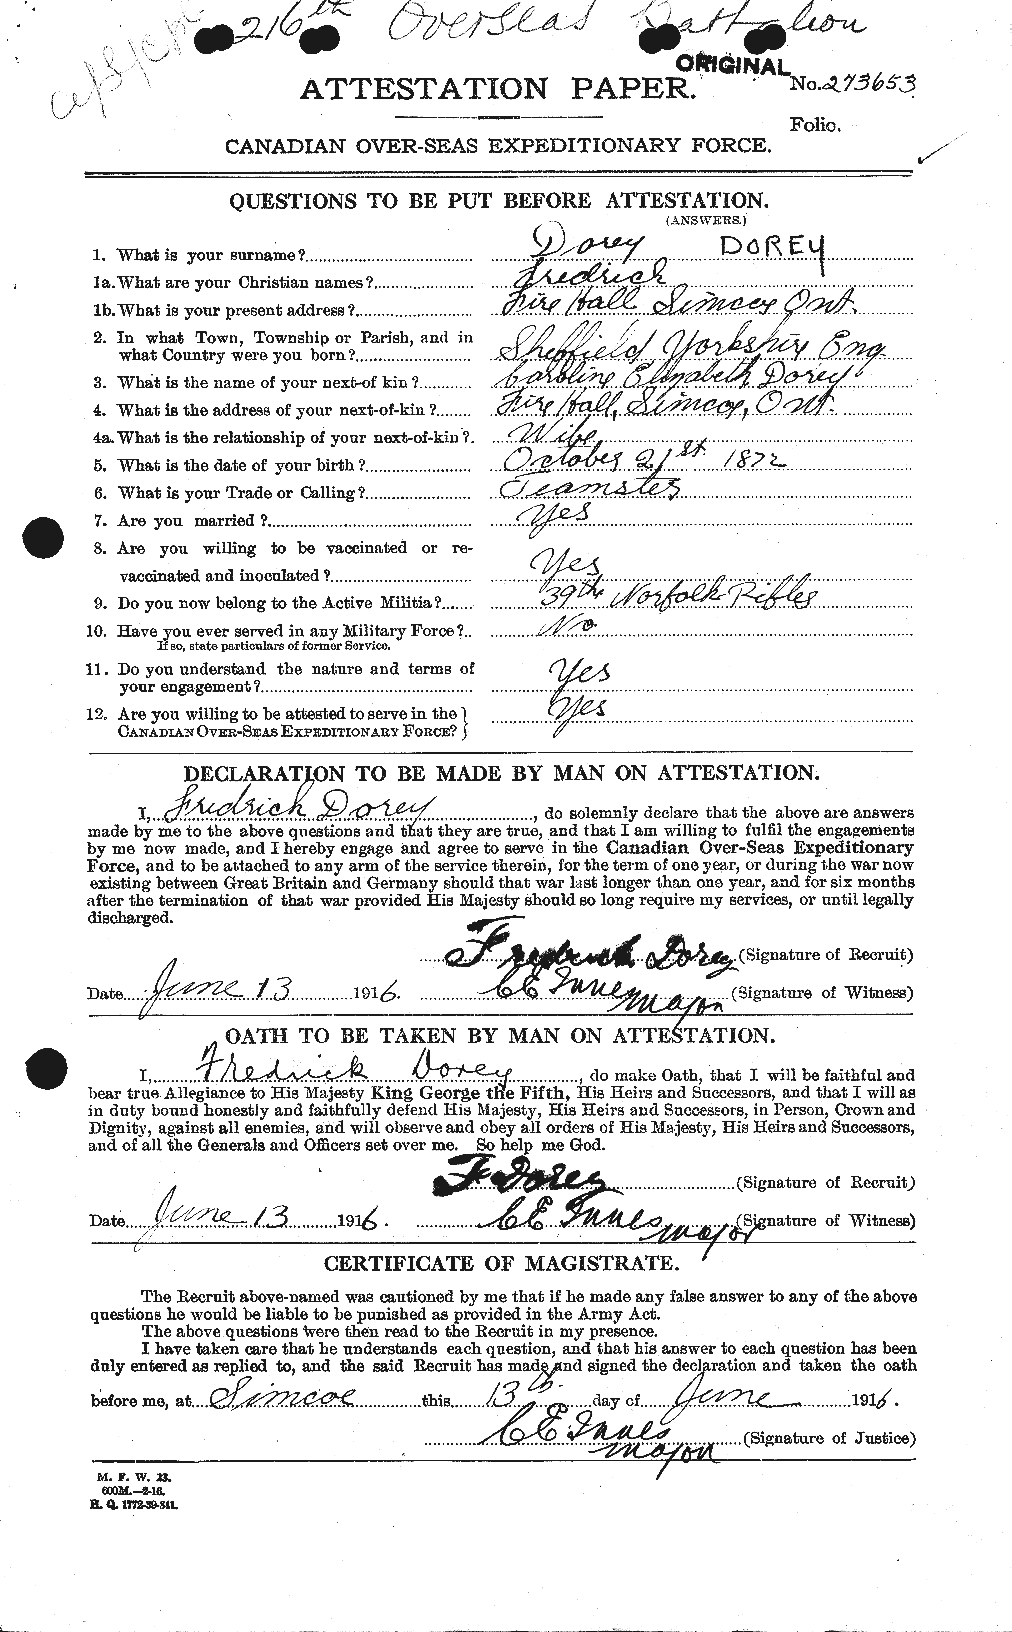 216th Overseas Battalion
ORIGINAL
ATTESTATION PAPER.
No. 273653
Folio.
CANADIAN OVER-SEAS EXPEDITIONARY FORCE.
QUESTIONS TO BE PUT BEFORE ATTESTATION.
(ANSWERS.)
1. What is your surname? Dorey DOREY
1a. What are your Christian names? Fredrich
1b. What is your present address? Fire Hall Simcoe Ont.
2. In what Town, Township or Parish, and in
what Country were you born? Sheffield Yorkshire Eng
3. What is the name of your next-of kin? Caroline Elizabeth Dorey
4. What is the address of your next-of-kin? Fire Hall, Simcoe, Ont.
4a. What is the relationship of your next-of-kin? Wife
5. What is the date of your birth? October 21st 1872
6. What is your Trade or Calling? Teamster
7. Are you married? Yes
8. Are you willing to be vaccinated or re-
vaccinated and inoculated? Yes
9. Do you now belong to the Active Militia? 39th Norfolk Rifles
10. Have you ever served in any Military Force? No
If so, state particulars of former Service.
11. Do you understand the nature and terms of
your engagement? Yes
12. Are you willing to be attested to serve in the
CANADIAN OVER-SEAS EXPEDITIONARY FORCE? Yes
DECLARATION TO BE MADE BY MAN ON ATTESTATION.
I, Fredrich Dorey, do solemnly declare that the above are answers
made by me to the above questions and that they are true, and that I am willing to fulfil the engagements
by me now made, and I hereby engage and agree to serve in the Canadian Over-Seas Expeditionary
Force, and to be attached to any arm of the service therein, for the term of one year, or during the war now
existing between Great Britain and Germany should that war last longer than one year, and for six months
after the termination of that war provided His Majesty should so long require my services, or until legally
discharged.
Fredrick Dorey (Signature of Recruit)
Date June 13 1916. CE Innes Major (Signature of Witness)
OATH TO BE TAKEN BY MAN ON ATTESTATION.
I, Fredrick Dorey, do make Oath, that I will be faithful and
bear true Allegiance to His Majesty King George the Fifth, His Heirs and Successors, and that I will as
in duty bound honestly and faithfully defend His Majesty, His Heirs and Successors, in Person, Crown and
Dignity, against all enemies, and will observe and obey all orders of His Majesty, His Heirs and Successors,
and of all the Generals and Officers set over me. So help me God.
F Dorey (Signature of Recruit)
Date June 13 1916. CE Innes Major (Signature of Witness)
CERTIFICATE OF MAGISTRATE.
The Recruit above-named was cautioned by me that if he made any false answer to any of the above
questions he would be liable to be punished as provided in the Army Act.
The above questions were then read to the Recruit in my presence.
I have taken care that he understands each question, and that his answer to each question has been
duly entered as replied to, and the said Recruit has made and signed the declaration and taken the oath
before me, at Simcoe this 13th day of June 1916.
CE Innes Major (Signature of Justice)
M. F. W. 23.
600M.—2-16.
H. Q. 1772-39-841.